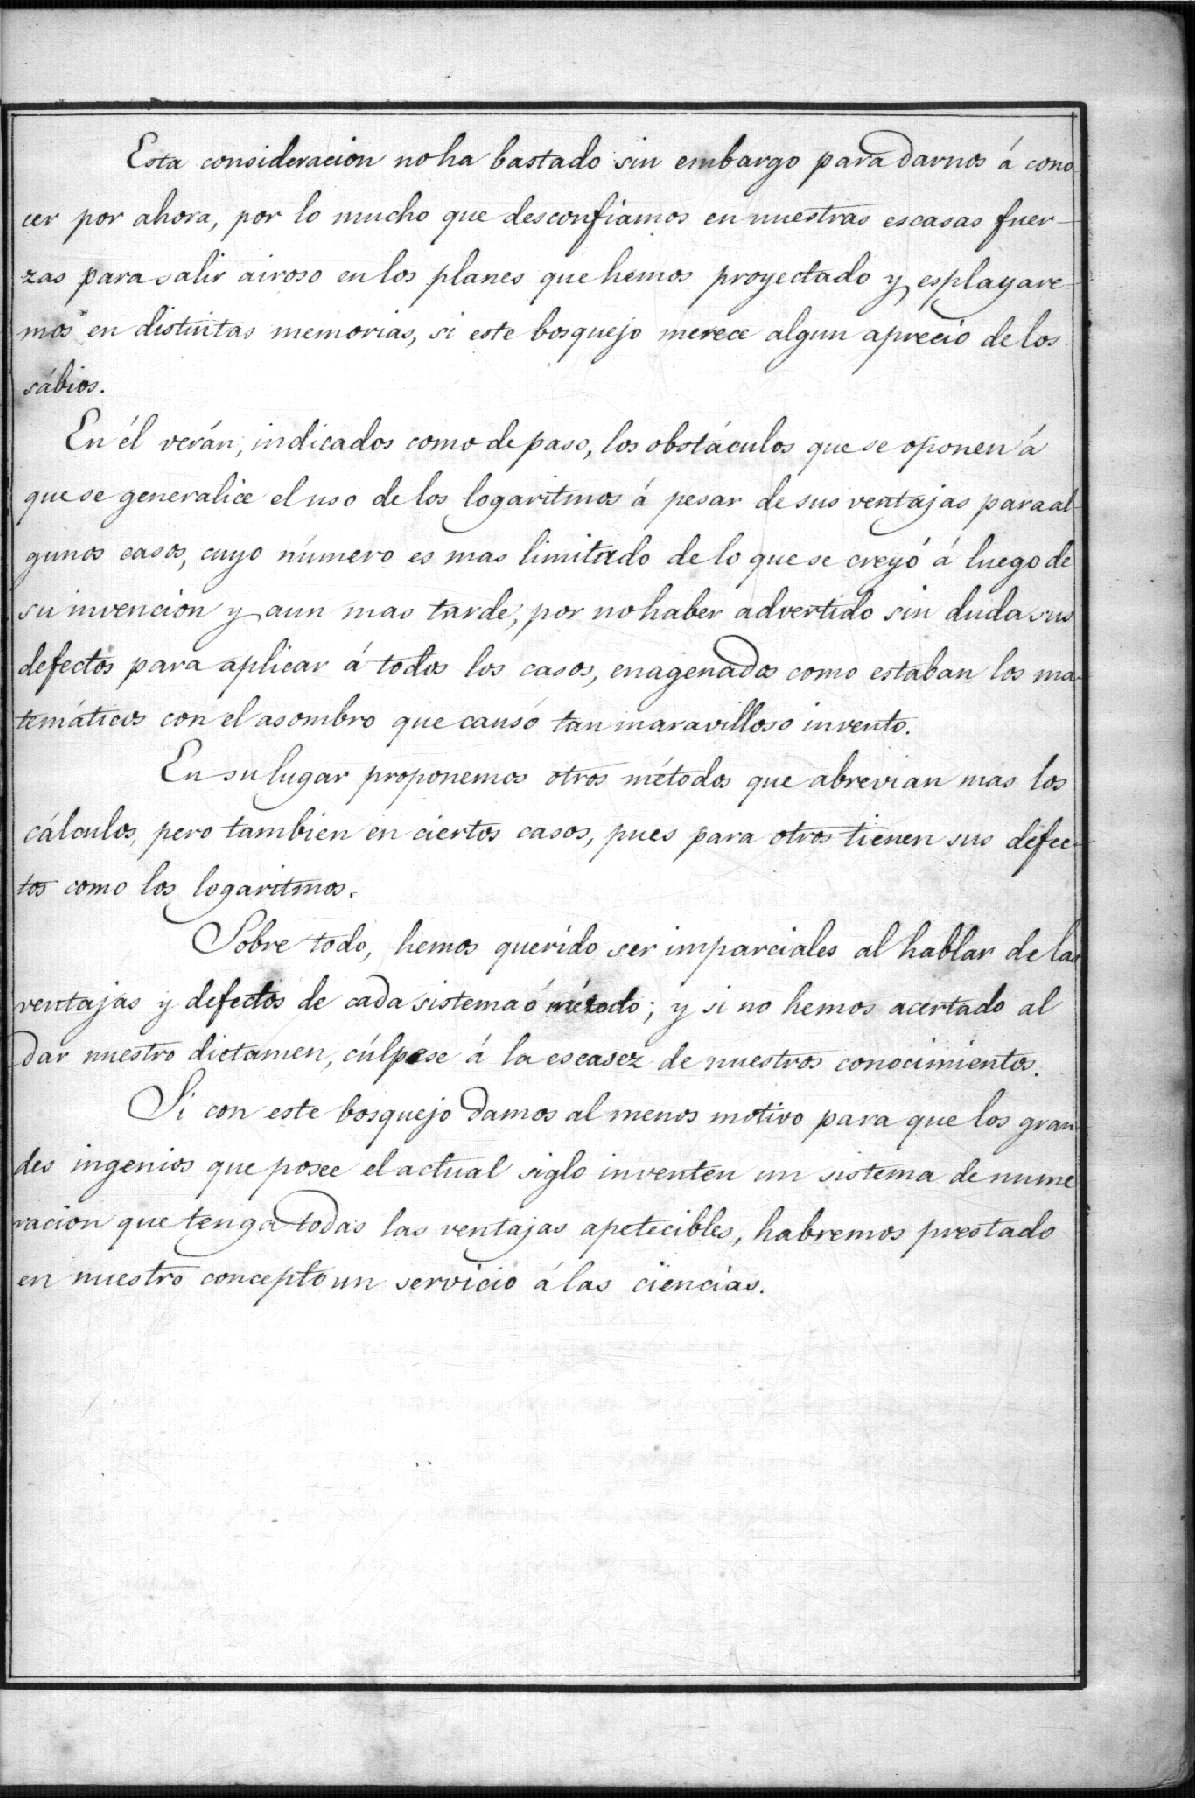 Esta consideracion no ha bastado sin embargo para darnos á cono
cer por ahora, por lo mucho que desconfiamos en nuestras escasas fuer-
zas para salir airoso en los planes que hemos proyectado y esplayare-
mos en distintas memorias, si este bosquejo merece algun aprecio de los
sábios.
En él verán, indicados como de paso, los obstáculos que se oponen á
que se generalice el uso de los logaritmos á pesar de sus ventajas para al-
gunos casos, cuyo número es mas limitado de lo que se creyó á luego de
su invencion y aun mas tarde, por no haber advertido sin duda sus
defectos para aplicar á todos los casos, enagenados como estaban los ma-
temáticos con el asombro que causó tan maravilloso invento.
En su lugar proponemos otros métodos que abrevian mas los
cálculos, pero tambien en ciertos casos, pues para otros tienen sus defec-
tos como los logaritmos.
Sobre todo, hemos querido ser imparciales al hablar de las
ventajas y defectos de cada sistema ó método; y si no hemos acertado al
dar nuestro dictamen, cúlpese á la escasez de nuestros conocimientos.
Si con este bosquejo damos al menos motivo para que los gran-
des ingenios que posee el actual siglo inventen un sistema de nume
racion que tenga todas las ventajas apetecibles, habremos prestado
en nuestro concepto un servicio á las ciencias.